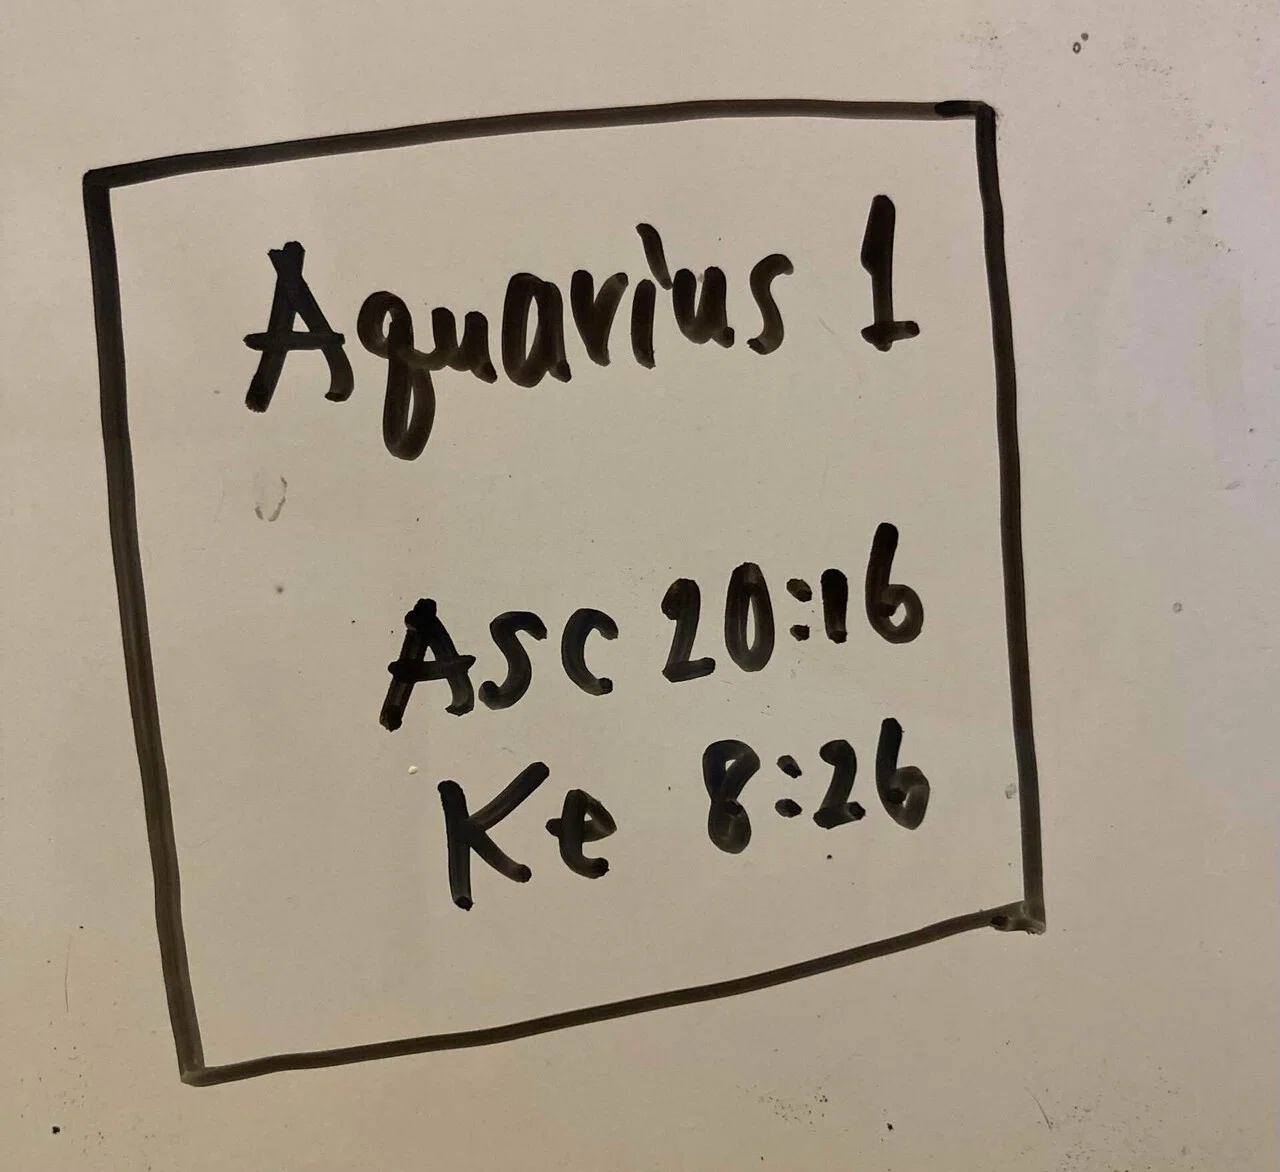 Aquarius 1
Asc 20:16
Ke 8:26